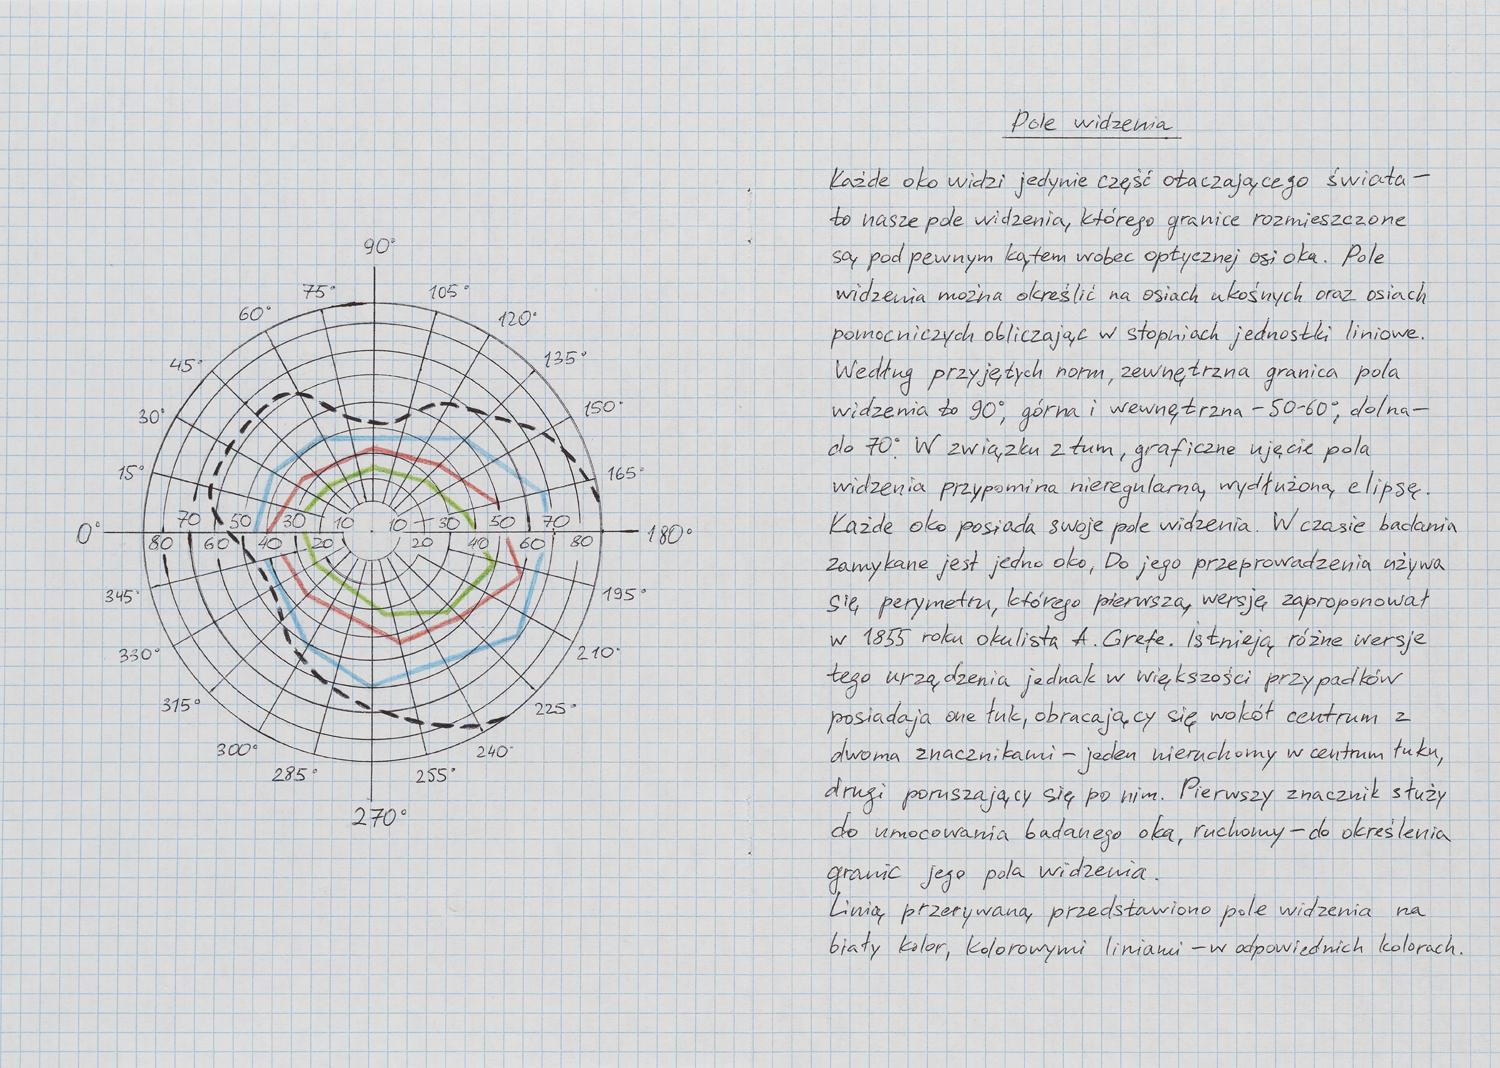 Pole widzenia
Każde oko widzi jedynie część otaczającego świata –
to nasze pole widzenia, którego granice rozmieszczone
są pod pewnym kątem wobec optycznej osi oka. Pole
widzenia można określić na osiach ukośnych oraz osiach
pomocniczych obliczając w stopniach jednostki liniowe.
Według przyjętych norm, zewnętrzna granica pola
widzenia to 90°, górna i wewnętrzna – 50-60°, dolna –
do 70°. W związku z tum, graficzne ujęcie pola
widzenia przypomina nieregularną, wydłużoną elipsę.
Każde oko posiada swoje pole widzenia. W czasie badania
zamykane jest jedno oko, Do jego przeprowadzenia używa
się perymetru, którego pierwszą wersję zaproponował
w 1855 roku okulista A. Grefe. Istnieją różne wersje
tego urządzenia jednak w większości przypadków
posiadaja one łuk, obracający się wokół centrum z
dwoma znacznikami – jeden nieruchomy w centrum łuku,
drugi poruszający się po nim. Pierwszy znacznik służy
do umocowania badanego oka, ruchomy – do określenia
granic jego pola widzenia.
Linią przerywaną przedstawiono pole widzenia na
biały kolor, kolorowymi liniami – w odpowiednich kolorach.
90°
75° 105°
60° 120°
45° 135°
30° 150°
15° 165°
70 50 30 10 10 30 50 70
0° 180°
80 60 40 20 20 40 60 80
345° 195°
330° 210°
315° 225°
300° 240°
285° 255°
270°